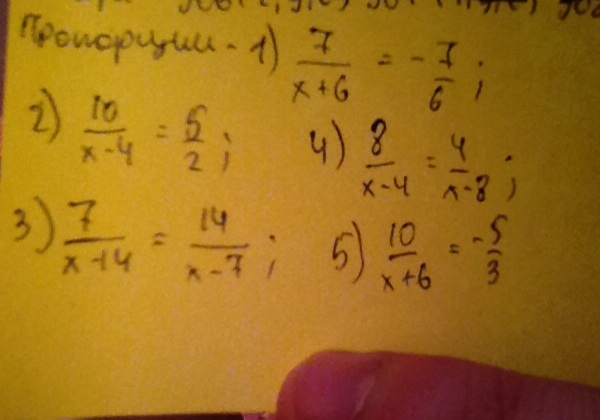 Пропорции - 1) 7/(x+6) = - 7/6 ;
2) 10/(x-4) = 5/2 ;
4) 8/(x-4) = 4/(x-8) ;
3) 7/(x-14) = 14/(x-7) ;
5) 10/(x+6) = - 5/3